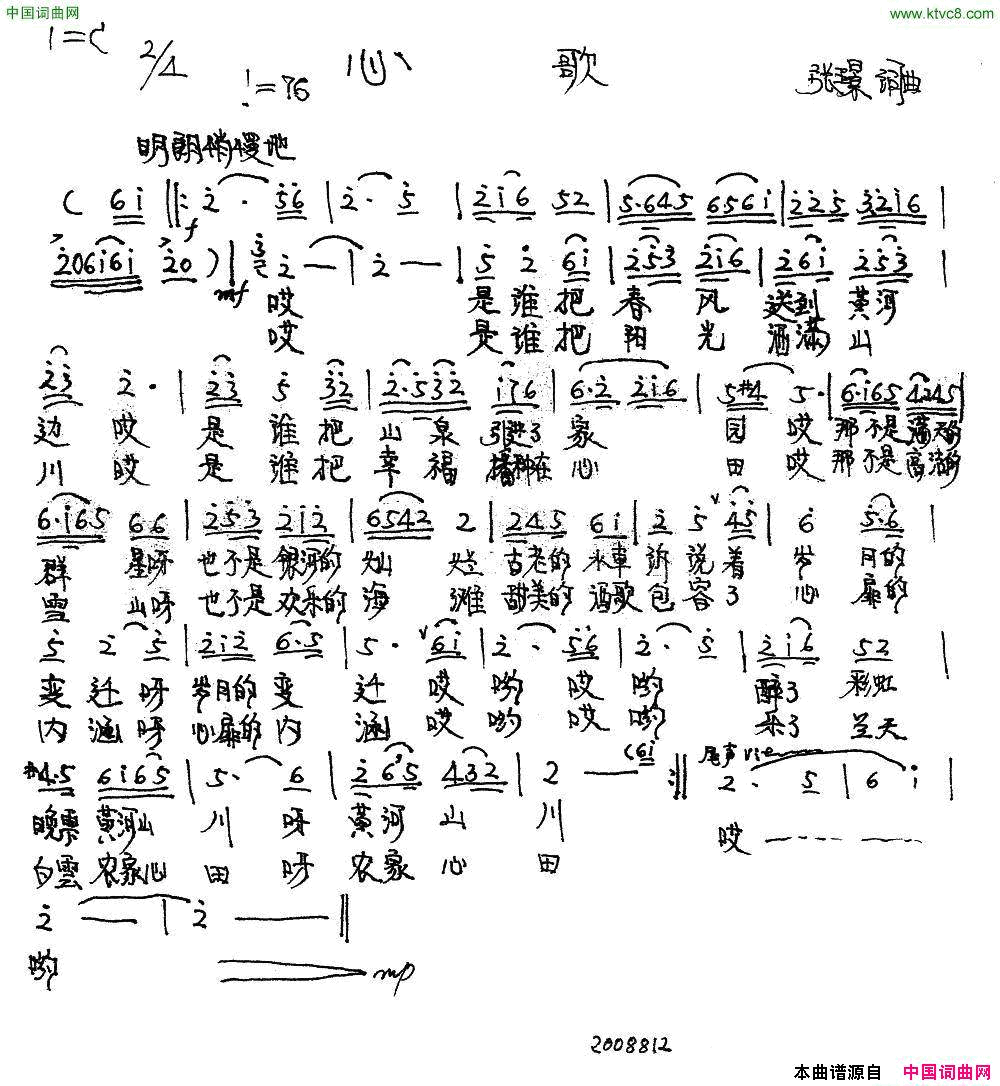 中国词曲网 www.ktvc8.com
1=C 2/4 心 歌 张璟 词曲
♩=76
明朗稍慢地
( 6i ‖: 2 · 56 | 2 · 5 | 2i6 52 | 5·645 656i | 225 32i6 |
206i6i 20 ) | 3 2 — | 2 — | 5 2 6i | 253 2i6 | 26i 253 |
f
mf 哎 是谁把春风送到黄河
哎 是谁把阳光洒满山
23 2· | 23 5 32 | 2·532 i76 | 6·2 2i6 | 5#4 5· | 6·i65 4245 |
边哎是谁把山泉引进了家园哎那不是满天的
川哎是谁把幸福播种在心田哎那不是高洁的
6·i65 66 | 253 2i2 | 6542 2 | 245 6i | 2 5 45 | 6 5·6 |
群星呀也不是银河的灿烂古老的水車訴说着岁月的
雪山呀也不是欢乐的海滩甜美的酒歌包容了心扉的
5 2 5 | 2i2 6·5 | 5· 6i | 2· 56 | 2· 5 | 2i6 52 |
变迁呀岁月的变迁哎哟哎哟醉了彩虹
内涵呀心扉的内涵哎哟哎哟朵了兰天
#4·5 6i65 | 5· 6 | 2 6 5 432 | 2 — (6i :‖ 尾声 2· 5 | 6 i |
晚霞黄河山川呀黄河山川 哎
白雲农家心田呀农家心田
2 — | 2 — ‖
哟 mp
2008812
本曲谱源自 中国词曲网